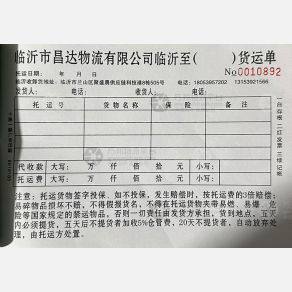 临沂市昌达物流有限公司临沂至(　　)货运单
托运日期:　年　月　日　No0010892
临沂卸货部地址:临沂市兰山区聚盛晨供应链科技港8栋505号　电话:18053957202　13153921566
发货人:　电话:　收货人:　电话:
托运号　货物名称　保险　备注
代收款　大写:　万　仟　佰　拾　元　小写:
托运费　大写:　万　仟　佰　拾　元　小写:
注意:托运货物签字投保、如不投保,发生赔偿时,按托运费的3倍赔偿;
易碎物品损坏不赔,不得假报货名,不得在托运货物夹带易燃、易爆、危
险等国家规定的禁运物品,否则一切责任由发货方承担,货到地点,五天
内必须提货,五天后不提货者加收5%仓管费,20天不提货者,自动放弃处
理,由托运方处置。
白存根 二红发票 三绿记账